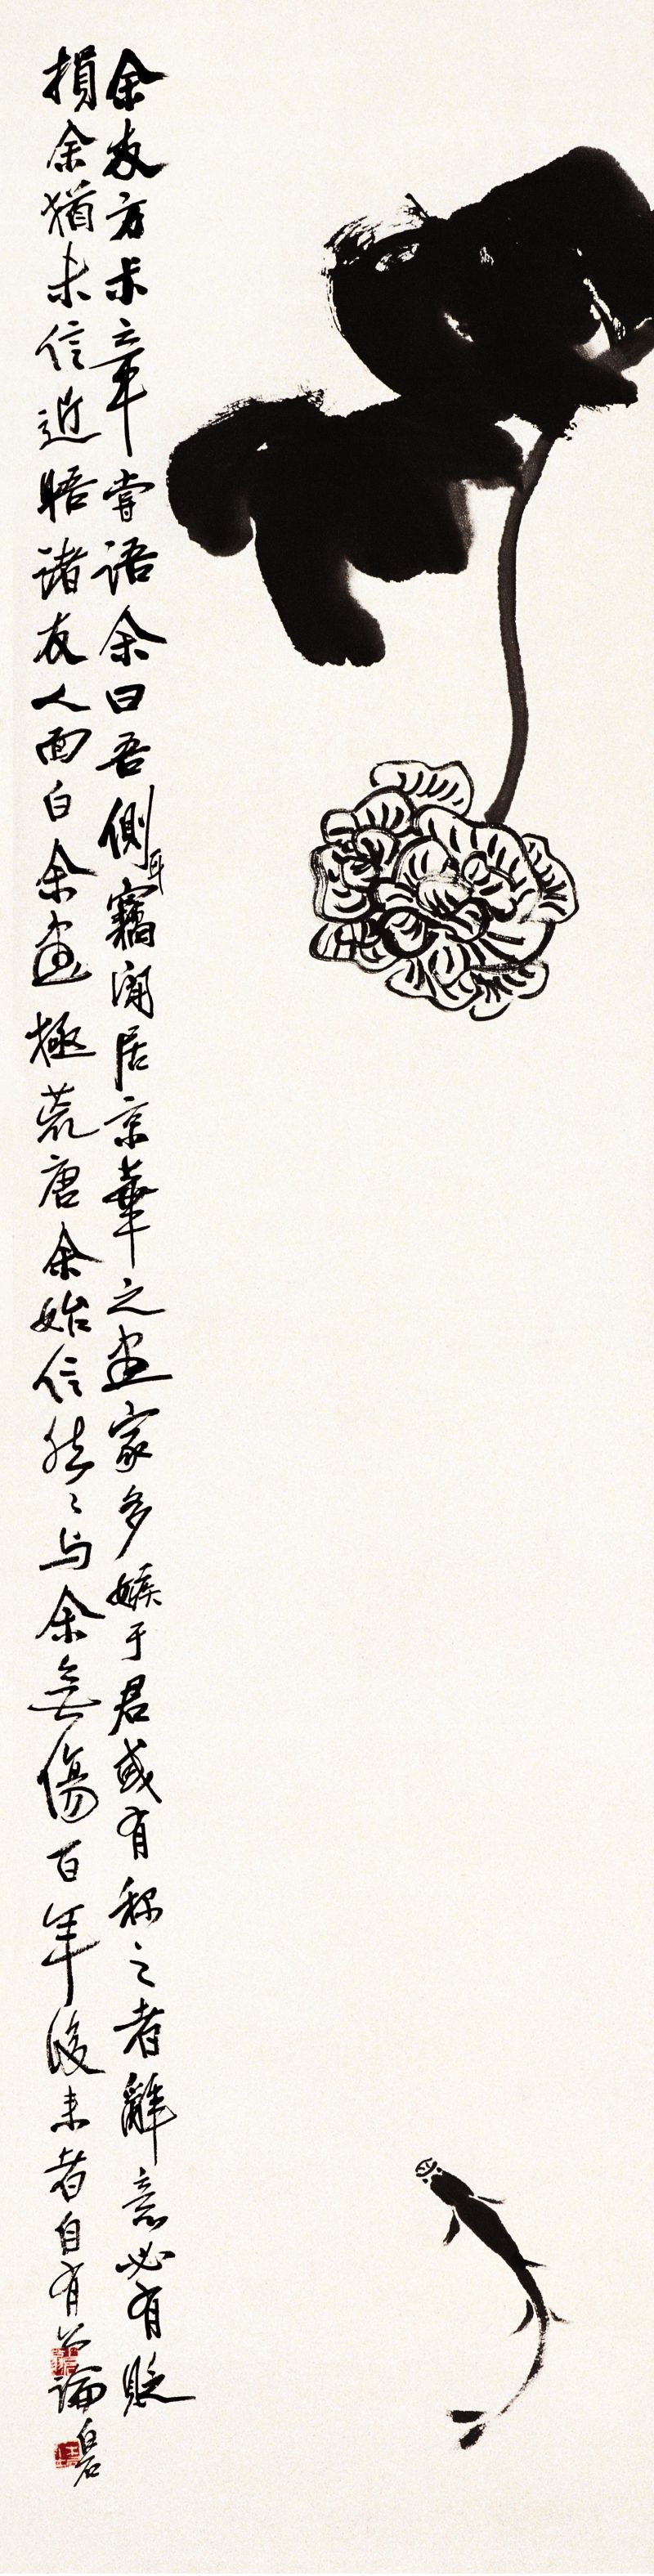 余友方朮章嘗語余曰吾側耳竊聞居京華之畫家多嫉于君或有稱之者辭意必有貶
損余猶未信近晤諸友人面白余畫極荒唐余始信然〻与余無傷百年後來者自有公論白石